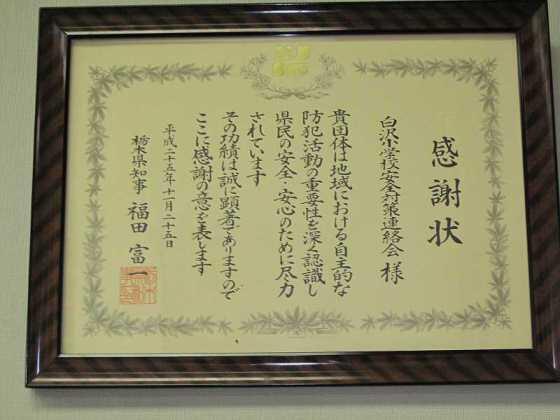 感謝状
白沢小学校安全対策連絡会 様
貴団体は地域における自主的な
防犯活動の重要性を深く認識し
県民の安全・安心のために尽力
されています
その功績は誠に顕著でありますので
ここに感謝の意を表します
平成二十五年十一月二十五日
栃木県知事 福田富一